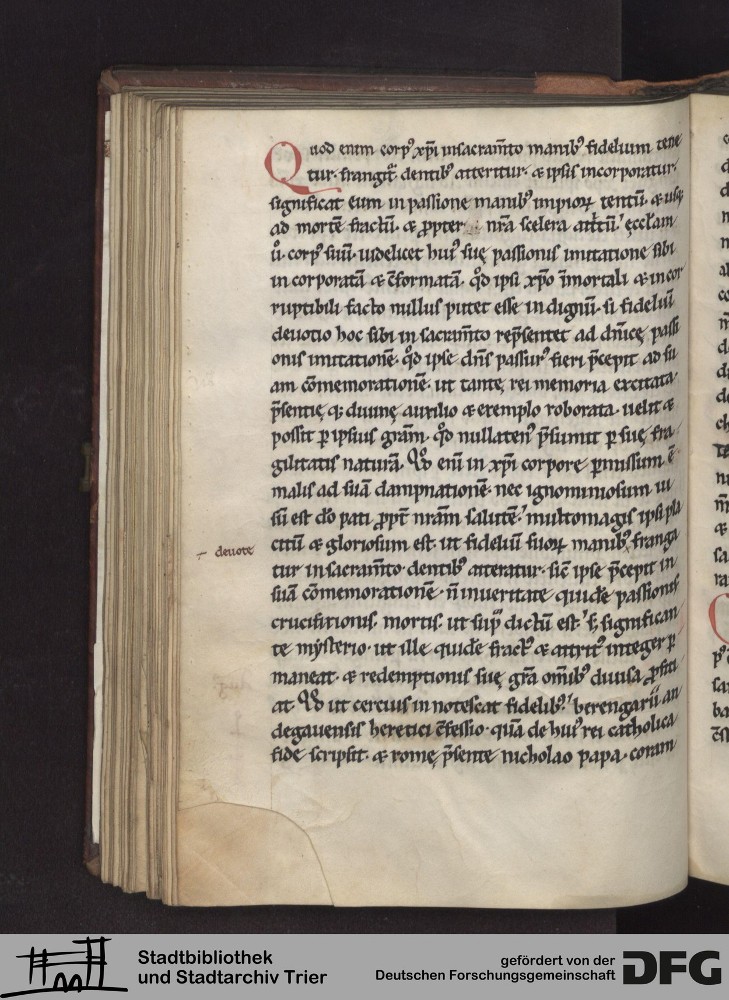 Quod enim corpꝰ xp̅i insacram̅to manibꝰ fidelium tene
tur. frangit᷑. dentibꝰ atteritur. & ipsis incorporatur.
significat eum in passione manibꝰ impioꝝ tentu̅. & usq;
ad morte̅ fractu̅. & ꝓpter n̅ra scelera attritu̅. eccl̅am
ů. corpꝰ suu̅. uidelicet huiꝰ suę passionis imitatione sibi
in corporata̅ & c̅formata̅. qͦd ipsi xp̅o i̅mortali & incor
ruptibili facto nullus putet esse in dignu̅. si fideliu̅
deuotio hoc sibi in sacram̅to rep̅sentet ad dn̅icę passi
onis imitatione̅. qͦd ipse dn̅s passurꝰ fieri p̅cepit ad su
am co̅memoratione̅. ut tantę rei memoria excitata.
p̅sentię q; diuinę auxilio & exemplo roborata. uelit &
possit ꝑ ipsius gr̅am. qͦd nullatenꝰ p̅sumit ꝑ suę fra
gilitatis natura̅. Qͦd eni̅ in xp̅i corpore ꝑmissum e̅
malis ad sua̅ dampnatione̅. nec ignominiosum ui
su̅ est do̅ pati ꝓpt̅ nr̅am salute̅. multomagis ipsi pla
citu̅ & gloriosum est. ut fideliu̅ suoꝝ manibꝰ franga
devote
tur in sacram̅to. dentibꝰ atteratur. sic̅ ipse p̅cepit in
sua̅ co̅memoratione̅. n̅ inueritate quide̅ passionis
crucifixionis. mortis. ut supͣ dictu̅ est. s; significan
te mysterio. ut ille quide̅ fractꝰ & attritꝰ integer ꝑ
maneat. & redemptionis suę gr̅a om̅ibꝰ diuisa ꝓfici
at. Qͦd ut cercius in notescat fidelibꝰ. berengarii an
degauensis heretici c̅fessio. qua̅ de huiꝰ rei catholica
fide scripsit. & rome p̅sente nicholao papa. coram
Stadtbibliothek
und Stadtarchiv Trier
gefördert von der
Deutschen Forschungsgemeinschaft
DFG